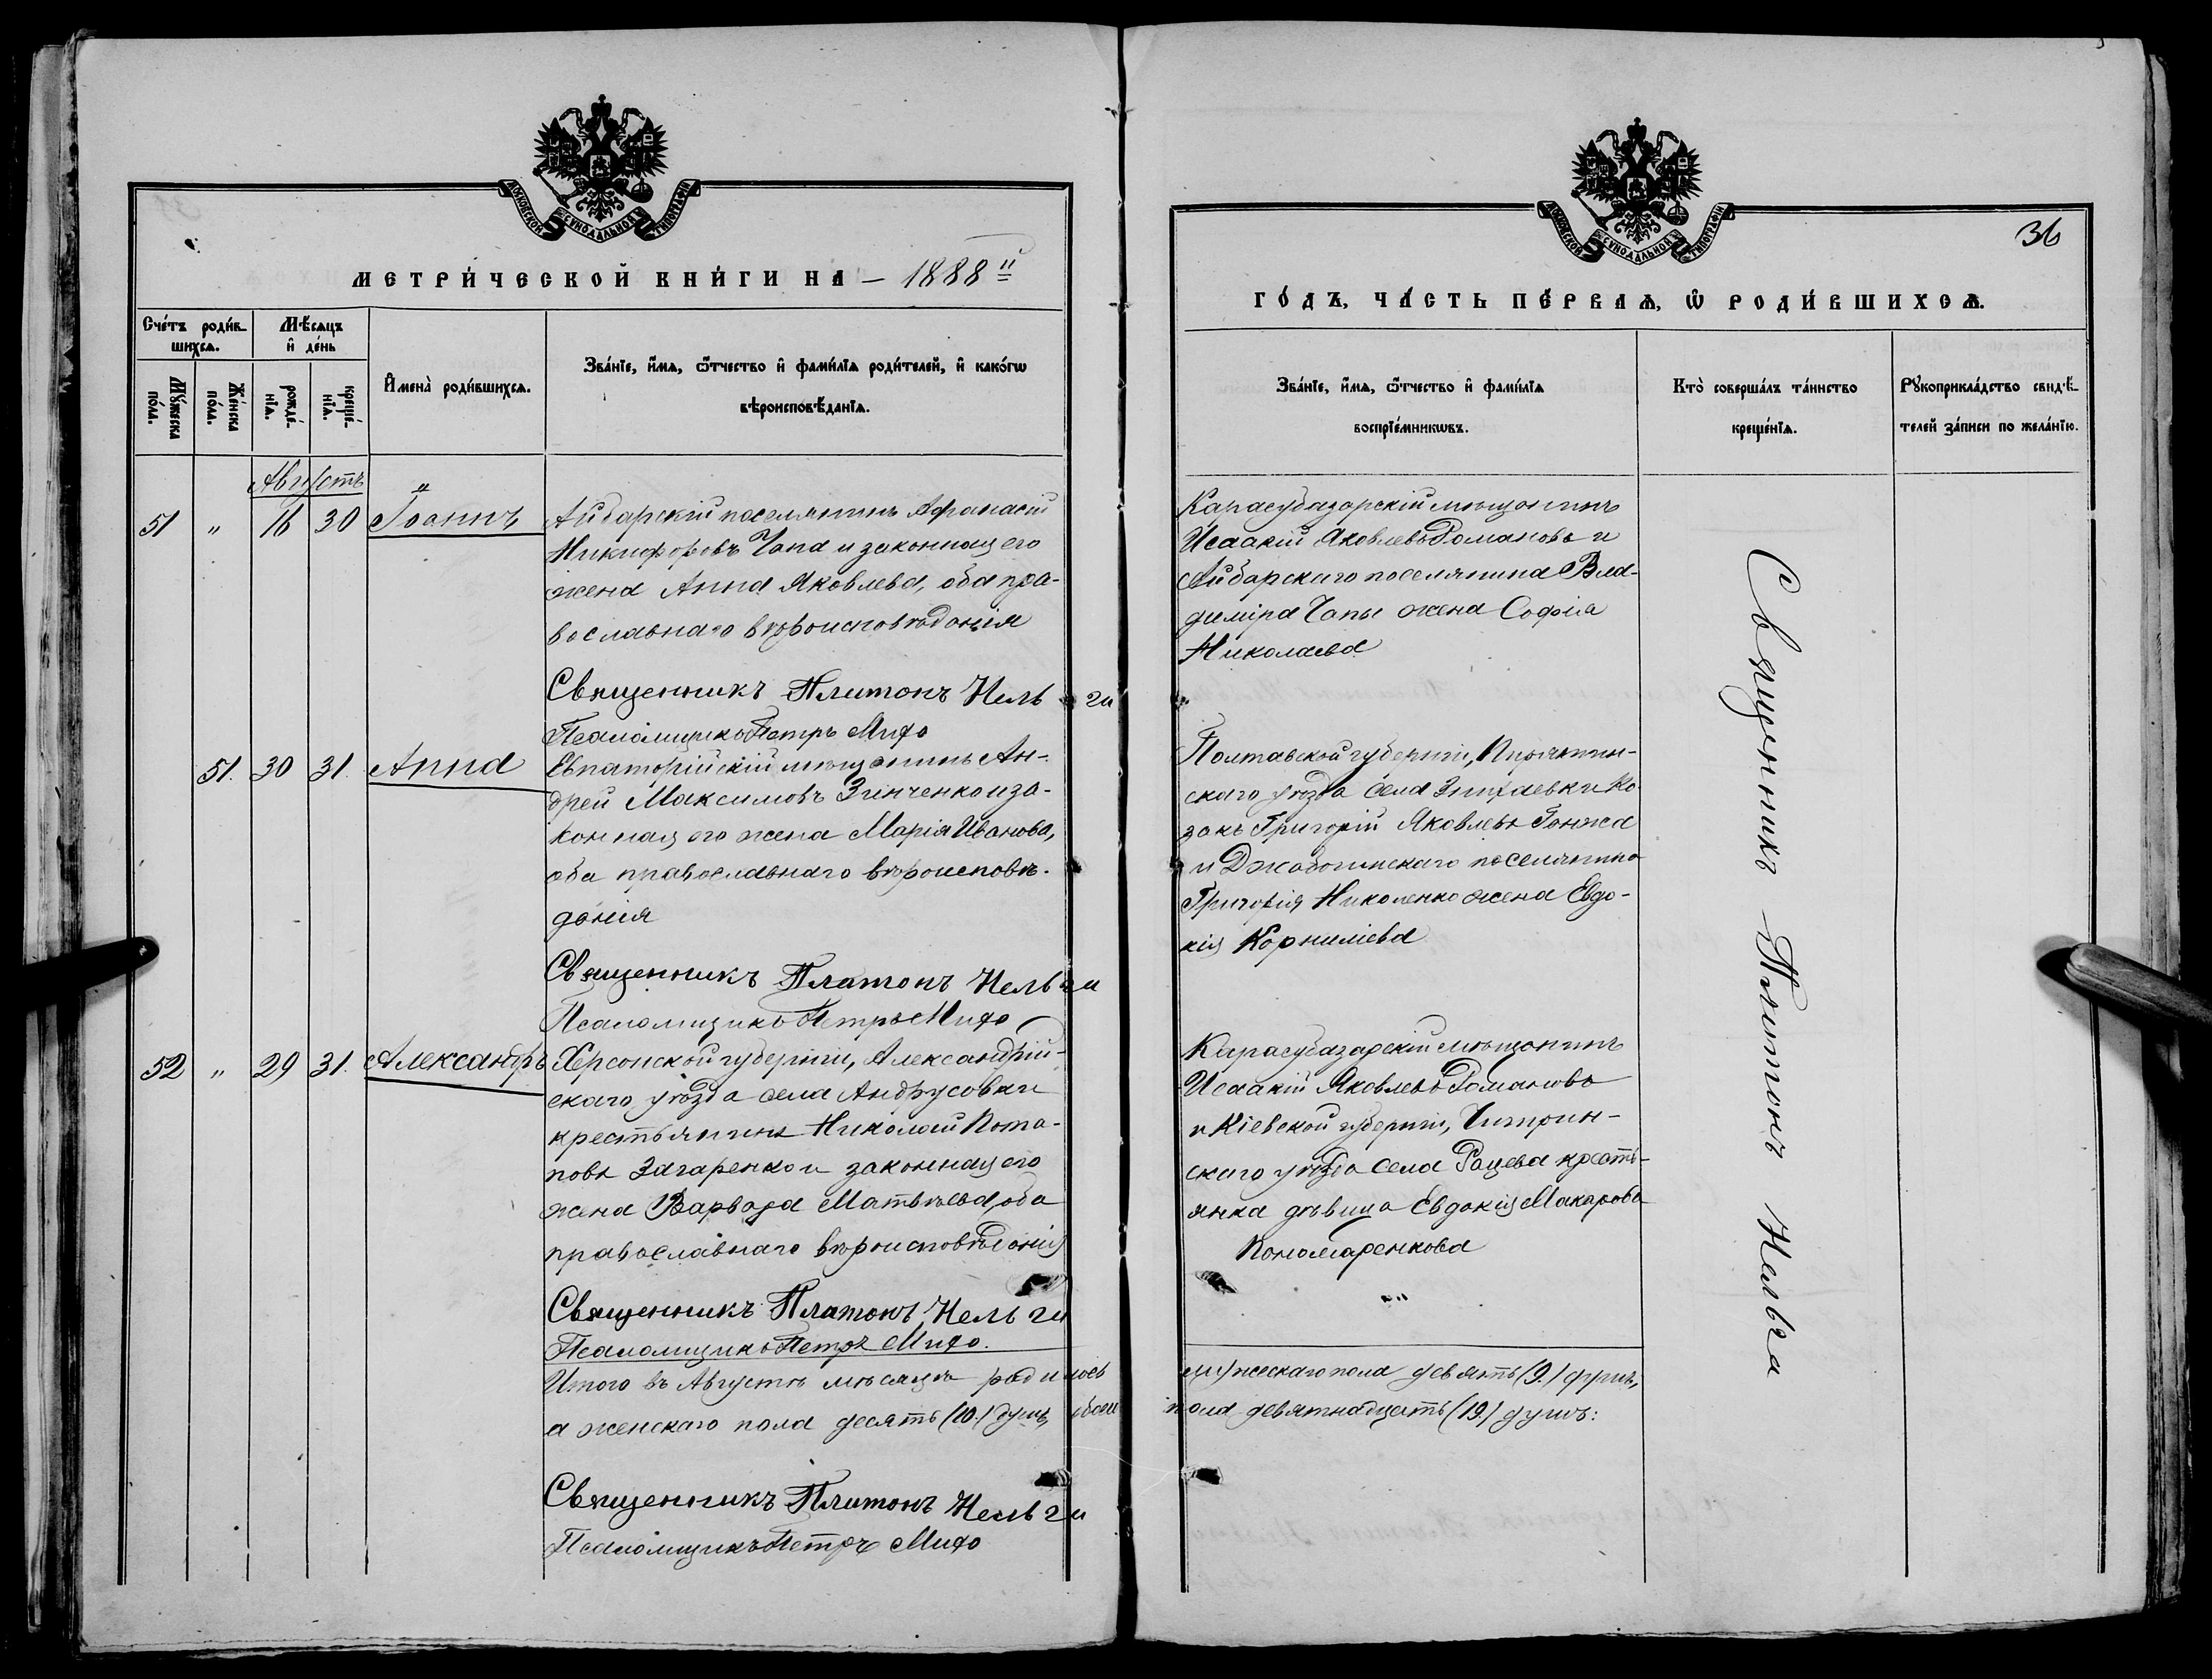 МОСКОВСКОЙ СѴНОДАЛЬНОЙ ТИПОГРАФІИ
МЕТРИ́ЧЕСКОЙ КНИ́ГИ НА – 1888й
Сче́тъ роди́в-
шихсѧ.
Мѣ́сѧцъ
и҆ де́нь
Мꙋ́жеска
по́ла.
Же́нска
по́ла.
рожде́-
нїѧ.
креще́-
нїѧ.
И҆мена̀ роди́вшихсѧ.
Зва́нїе, и҆́мѧ, ѻ҆́тчество и҆ фами́лїѧ роди́телей, и҆ како́гѡ
вѣроисповѣ́данїѧ.
Августъ
51 " 16 30 Іоаннъ
Айбарскій поселянинъ Афанасій
Никифоровъ Чапа и законная его
жена Анна Яковлева, оба пра-
вославнаго вѣроисповѣданія
Священникъ Платонъ Нельга
Псаломщикъ Петръ Мифо
51. 30 31. Анна
Евпаторійскій мѣщанинъ Ан-
дрей Максимовъ Зинченко и за-
конная его жена Марія Иванова,
оба православнаго вѣроисповѣ-
данія
Священникъ Платонъ Нельга
Псаломщикъ Петръ Мифо
52 " 29 31. Александръ
Херсонской губерніи, Александрій-
скаго уѣзда села Андрусовки
крестьянинъ Николай Пота-
повъ Загаренко и законная его
жена Варвара Матвѣева, оба
православнаго вѣроисповѣданія
Священникъ Платонъ Нельга
Псаломщикъ Петръ Мифо.
Итого въ Августѣ мѣсяцѣ родилось
а женскаго пола десять (10.) душъ, обоего
Священникъ Платонъ Нельга
Псаломщикъ Петръ Мифо
МОСКОВСКОЙ СѴНОДАЛЬНОЙ ТИПОГРАФІИ
36
ГО́ДЪ, ЧА́СТЬ ПЕ́РВАѦ, Ѡ҆ РОДИ́ВШИХСѦ.
Зва́нїе, и҆́мѧ, ѻ҆́тчество и҆ фами́лїѧ
воспрїе́мникѡвъ.
Кто̀ соверша́лъ та́инство
креще́нїѧ.
Рꙋкоприкла́дство свидѣ́-
телей за́писи по жела́нїю.
Карасубазарскій мѣщанинъ
Исаакій Яковлевъ Романовъ и
Айбарскаго поселянина Вла-
диміра Чапы жена Софія
Николаева
Полтавской губерніи, Пирятин-
скаго уѣзда села Ко-
закъ Григорій Яковлевъ Ганжа
и поселянина
Григорія Николенко жена Евдо-
кія Корниліева
Карасубазарскій мѣщанинъ
Исаакій Яковлевъ Романовъ
и Кіевской губерніи, Чигрин-
скаго уѣзда села Рацева кресть-
янка дѣвица Евдокія Макарова
Пономаренкова
мужескаго пола девять (9.) душъ,
пола девятнадцать (19.) душъ:
Священникъ Платонъ Нельга